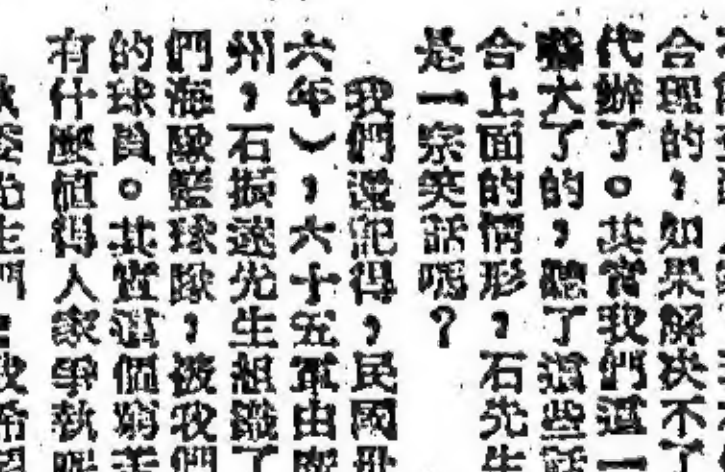 合理的，如果解決不了
代辦了。其實我們這一
大了的，聽了這些話
合上面的情形，石先生
是一宗笑話嗎？
我們還記得，民國卅
六年），六十五軍由
州，石振遠先生組織了
們海隊籃球隊，被我們
的球員。其實這個
有什麼值得人家爭執呢